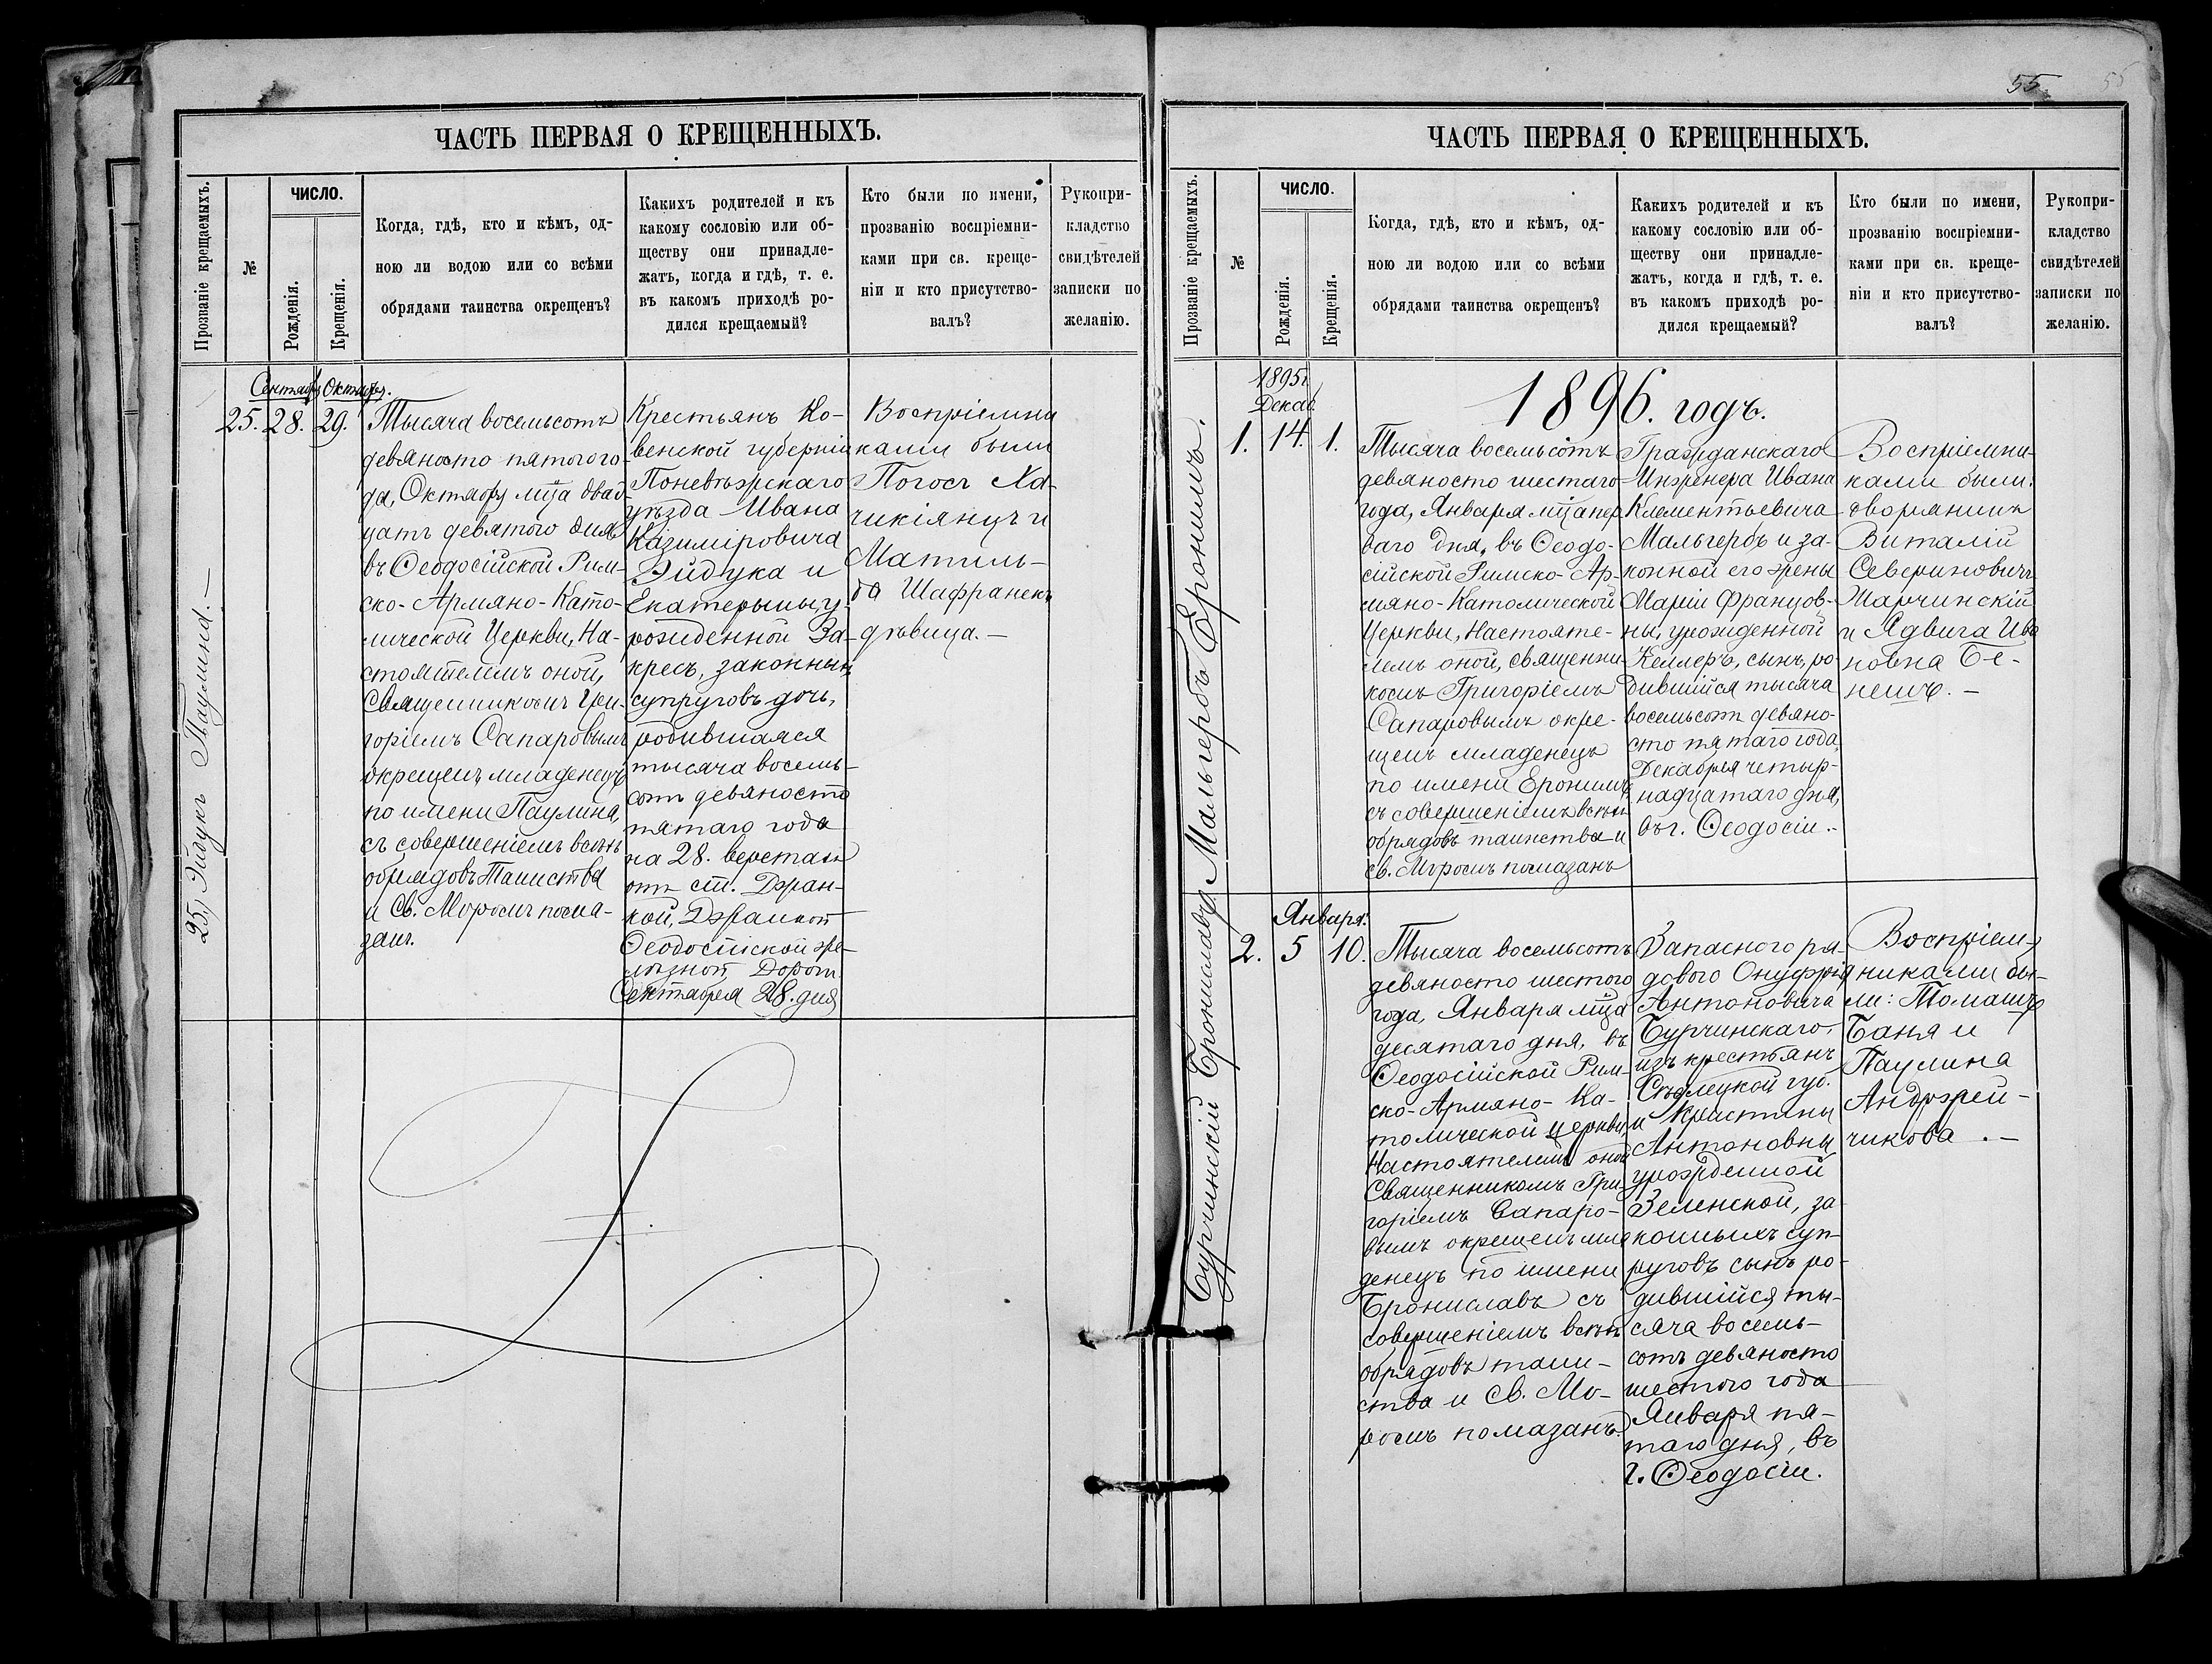 ЧАСТЬ ПЕРВАЯ О КРЕЩЕННЫХЪ.
Прозваніе крещаемыхъ.
№
ЧИСЛО.
Рожденія.
Крещенія.
Когда, гдѣ, кто и кѣмъ, од-
ною ли водою или со всѣми
обрядами таинства окрещенъ?
Какихъ родителей и къ
какому сословію или об-
ществу они принадле-
жатъ, когда и гдѣ, т. е.
въ какомъ приходѣ ро-
дился крещаемый?
Кто были по имени,
прозванію воспріемни-
ками при св. креще-
ніи и кто присутство-
валъ?
Рукопри-
кладство
свидѣтелей
записки по
желанію.
25, Эйдукъ Паулина.—
Сентябр. Октябр.
25. 28. 29.
Тысяча восемьсотъ
девяносто пятого го-
да, Октября мца двад-
цать девятого дня,
въ Ѳеодосійской Рим-
ско-Армяно-Като-
лической Церкви, На-
стоятелемъ оной,
Священникомъ Гри-
горіемъ Сапаровымъ
окрещенъ младенецъ
по имени Паулина,
съ совершеніемъ всѣхъ
обрядовъ Таинства
и Св. Мѵромъ пома-
занъ.
Крестьянъ Ко-
венской губерніи
Поневѣжскаго
уѣзда Ивана
Казиміровича
Эйдука и
Екатерыны у-
рожденной За-
кресъ, законныхъ
супруговъ дочь,
родившаяся
тысяча восемь-
сотъ девяносто
пятаго года
на 28. верстахъ
отъ ст. Джан-
кой, Джанкой
Ѳеодосійской же-
лѣзной Дороги
Сентября 28. дня
Воспріемни
ками были
Погосъ Ха-
чикіянцъ и
Матиль-
да Шафранекъ
дѣвица.—
55.
55
ЧАСТЬ ПЕРВАЯ О КРЕЩЕННЫХЪ.
Прозваніе крещаемыхъ.
№
ЧИСЛО.
Рожденія.
Крещенія.
Когда, гдѣ, кто и кѣмъ, од-
ною ли водою или со всѣми
обрядами таинства окрещенъ?
Какихъ родителей и къ
какому сословію или об-
ществу они принадле-
жатъ, когда и гдѣ, т. е.
въ какомъ приходѣ ро-
дился крещаемый?
Кто были по имени,
прозванію воспріемни-
ками при св. креще-
ніи и кто присутство-
валъ?
Рукопри-
кладство
свидѣтелей
записки по
желанію.
1896. годъ.
Мальгербъ Еронимъ.
1895г.
Декаб.
1. 14. 1.
Тысяча восемьсотъ
девяносто шестаго
года, Января мца пер
ваго дня, въ Ѳеодо-
сійской Римско-Ар-
мяно-Католической
Церкви, Настояте-
лемъ оной, священни-
комъ Григоріемъ
Сапаровымъ окре-
щенъ младенецъ
по имени Еронимъ
съ совершеніемъ всѣхъ
обрядовъ таинства и
св. Мѵромъ помазанъ
Гражданскаго
Инженера Ивана
Клементьевича
Мальгербъ и за-
конной его жены
Маріи Францов-
ны, урожденной
Келлеръ, сынъ, ро-
дившійся тысяча
восемьсотъ девяно-
сто пятаго года,
Декабря четыр-
надцатаго дня,
въ г. Ѳеодосіи.-
Воспріемни-
ками были:
дворянинъ
Виталій
Севериновичъ
Жарчинскій
и Ядвига Ива
новна Бе-
нешъ.—
Бурчинскій Брониславъ
Января.
2. 5 10.
Тысяча восемьсотъ
девяносто шестого
года, Января мца
десятаго дня, въ
Ѳеодосійской Рим-
ско-Армяно-Ка-
толической церкви,
Настоятелемъ оной
Священникомъ Гри
горіемъ Сапаро-
вымъ окрещенъ мла
денецъ по имени
Брониславъ съ
совершеніемъ всѣхъ
обрядовъ таин-
ства и Св. Мѵ-
ромъ помазанъ.
Запасного ря-
дового Онуфрія
Антоновича
Бурчинскаго,
изъ крестьянъ
Сѣдлецкой губ.
и Кристины
Антоновны
урожденной
Зеленской, за-
конныхъ суп-
руговъ сынъ ро-
дившійся ты-
сяча восемь-
сотъ девяносто
шестого года
Января пя-
таго дня, въ
г. Ѳеодосіи.
Воспріем-
никами бы-
ли: Томашъ
Баня и
Паулина
Андржей-
чикова.—